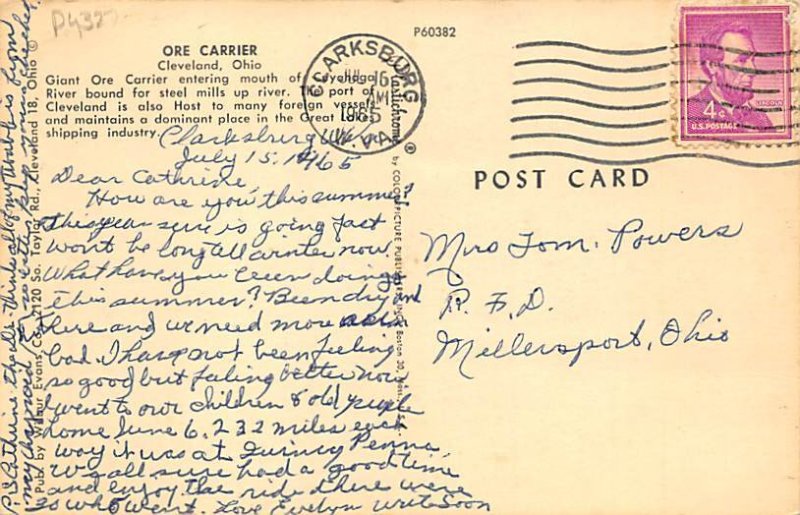 P4327
P60382
ORE CARRIER
Cleveland, Ohio
Giant Ore Carrier entering mouth of Cuyahoga
River bound for steel mills up river. The port of
Cleveland is also Host to many foreign vessels
and maintains a dominant place in the Great Lakes
shipping industry.
CLARKSBURG
JUL 16
AM
1965
W. VA.
LINCOLN
4¢
U.S. POSTAGE
POST CARD
Plastichrome ® by COLOURPICTURE PUBLISHERS, INC., Boston 30, Mass., U.S.A.
Pub. by Wilbur Evans, Co., 2120 So. Taylor Rd., Cleveland 18, Ohio ©
Clarksburg W.Va.
July 15. 1965
Dear Cathrine,
How are you this summer?
this year sure is going fast
wont be long till winter now.
What have you been doing
this summer? Been dry and
here and we need more rain
bad. I have not been feeling
so good but faling better now
I went to our Children & old people
home June 6. 232 miles each
way it was at Penna,
we all sure had a good time
and enjoy the ride there were
20 who went. Love Evelyn write Soon
P.S. Cathrine the all of my is from
my
Mrs Tom. Powers
R. F. D.
Millersport, Ohio